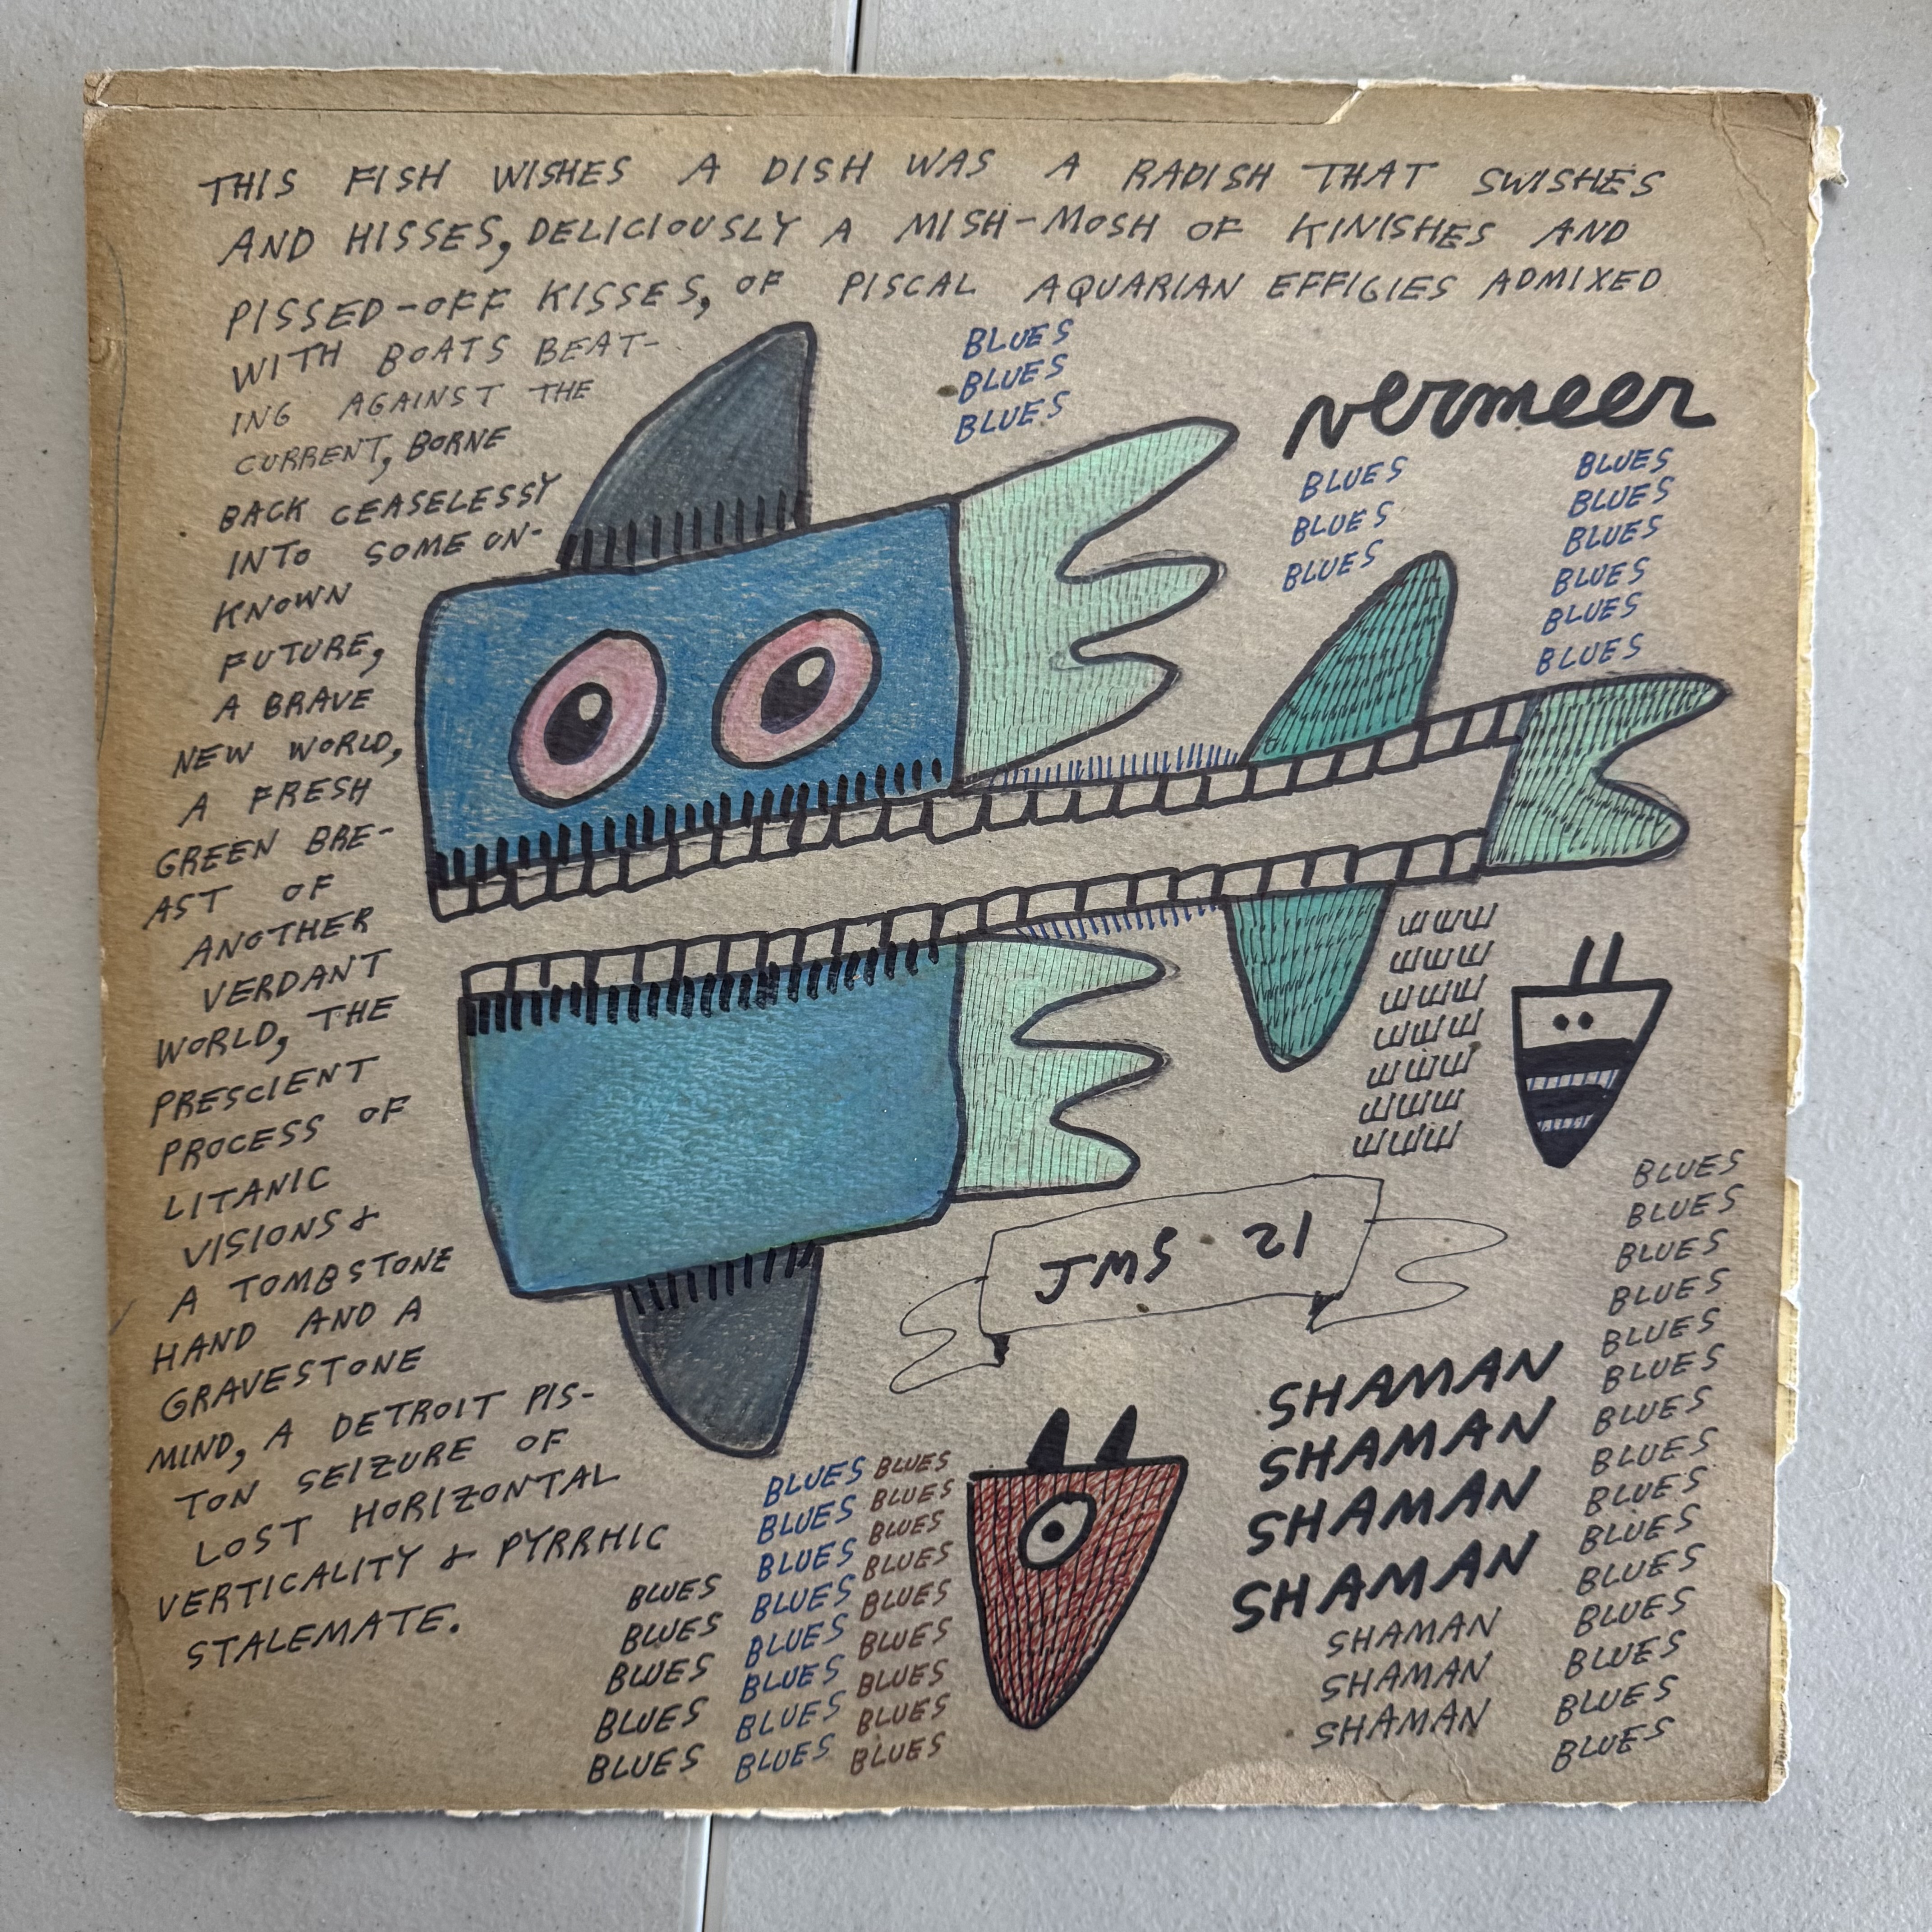 THIS FISH WISHES A DISH WAS A RADISH THAT SWISHES
AND HISSES, DELICIOUSLY A MISH-MOSH OF KINISHES AND
PISSED-OFF KISSES, OF PISCAL AQUARIAN EFFIGIES ADMIXED
WITH BOATS BEAT-
ING AGAINST THE
CURRENT, BORNE
BACK CEASELESSY
INTO SOME UN-
KNOWN
FUTURE,
A BRAVE
NEW WORLD,
A FRESH
GREEN BRE-
AST OF
ANOTHER
VERDANT
WORLD, THE
PRESCIENT
PROCESS OF
LITANIC
VISIONS &
A TOMBSTONE
HAND AND A
GRAVESTONE
MIND, A DETROIT PIS-
TON SEIZURE OF
LOST HORIZONTAL
VERTICALITY & PYRRHIC
STALEMATE.
BLUES
BLUES
BLUES
vermeer
BLUES
BLUES
BLUES
BLUES
BLUES
BLUES
BLUES
BLUES
BLUES
JMS 21
BLUES
BLUES
BLUES
BLUES
BLUES
BLUES
BLUES
BLUES
BLUES
BLUES
BLUES
BLUES
BLUES
BLUES
BLUES
BLUES
BLUES
BLUES
BLUES
BLUES
BLUES
BLUES
SHAMAN
SHAMAN
SHAMAN
SHAMAN
SHAMAN
SHAMAN
SHAMAN
BLUES
BLUES
BLUES
BLUES
BLUES
BLUES
BLUES
BLUES
BLUES
BLUES
BLUES
BLUES
BLUES
BLUES
BLUES